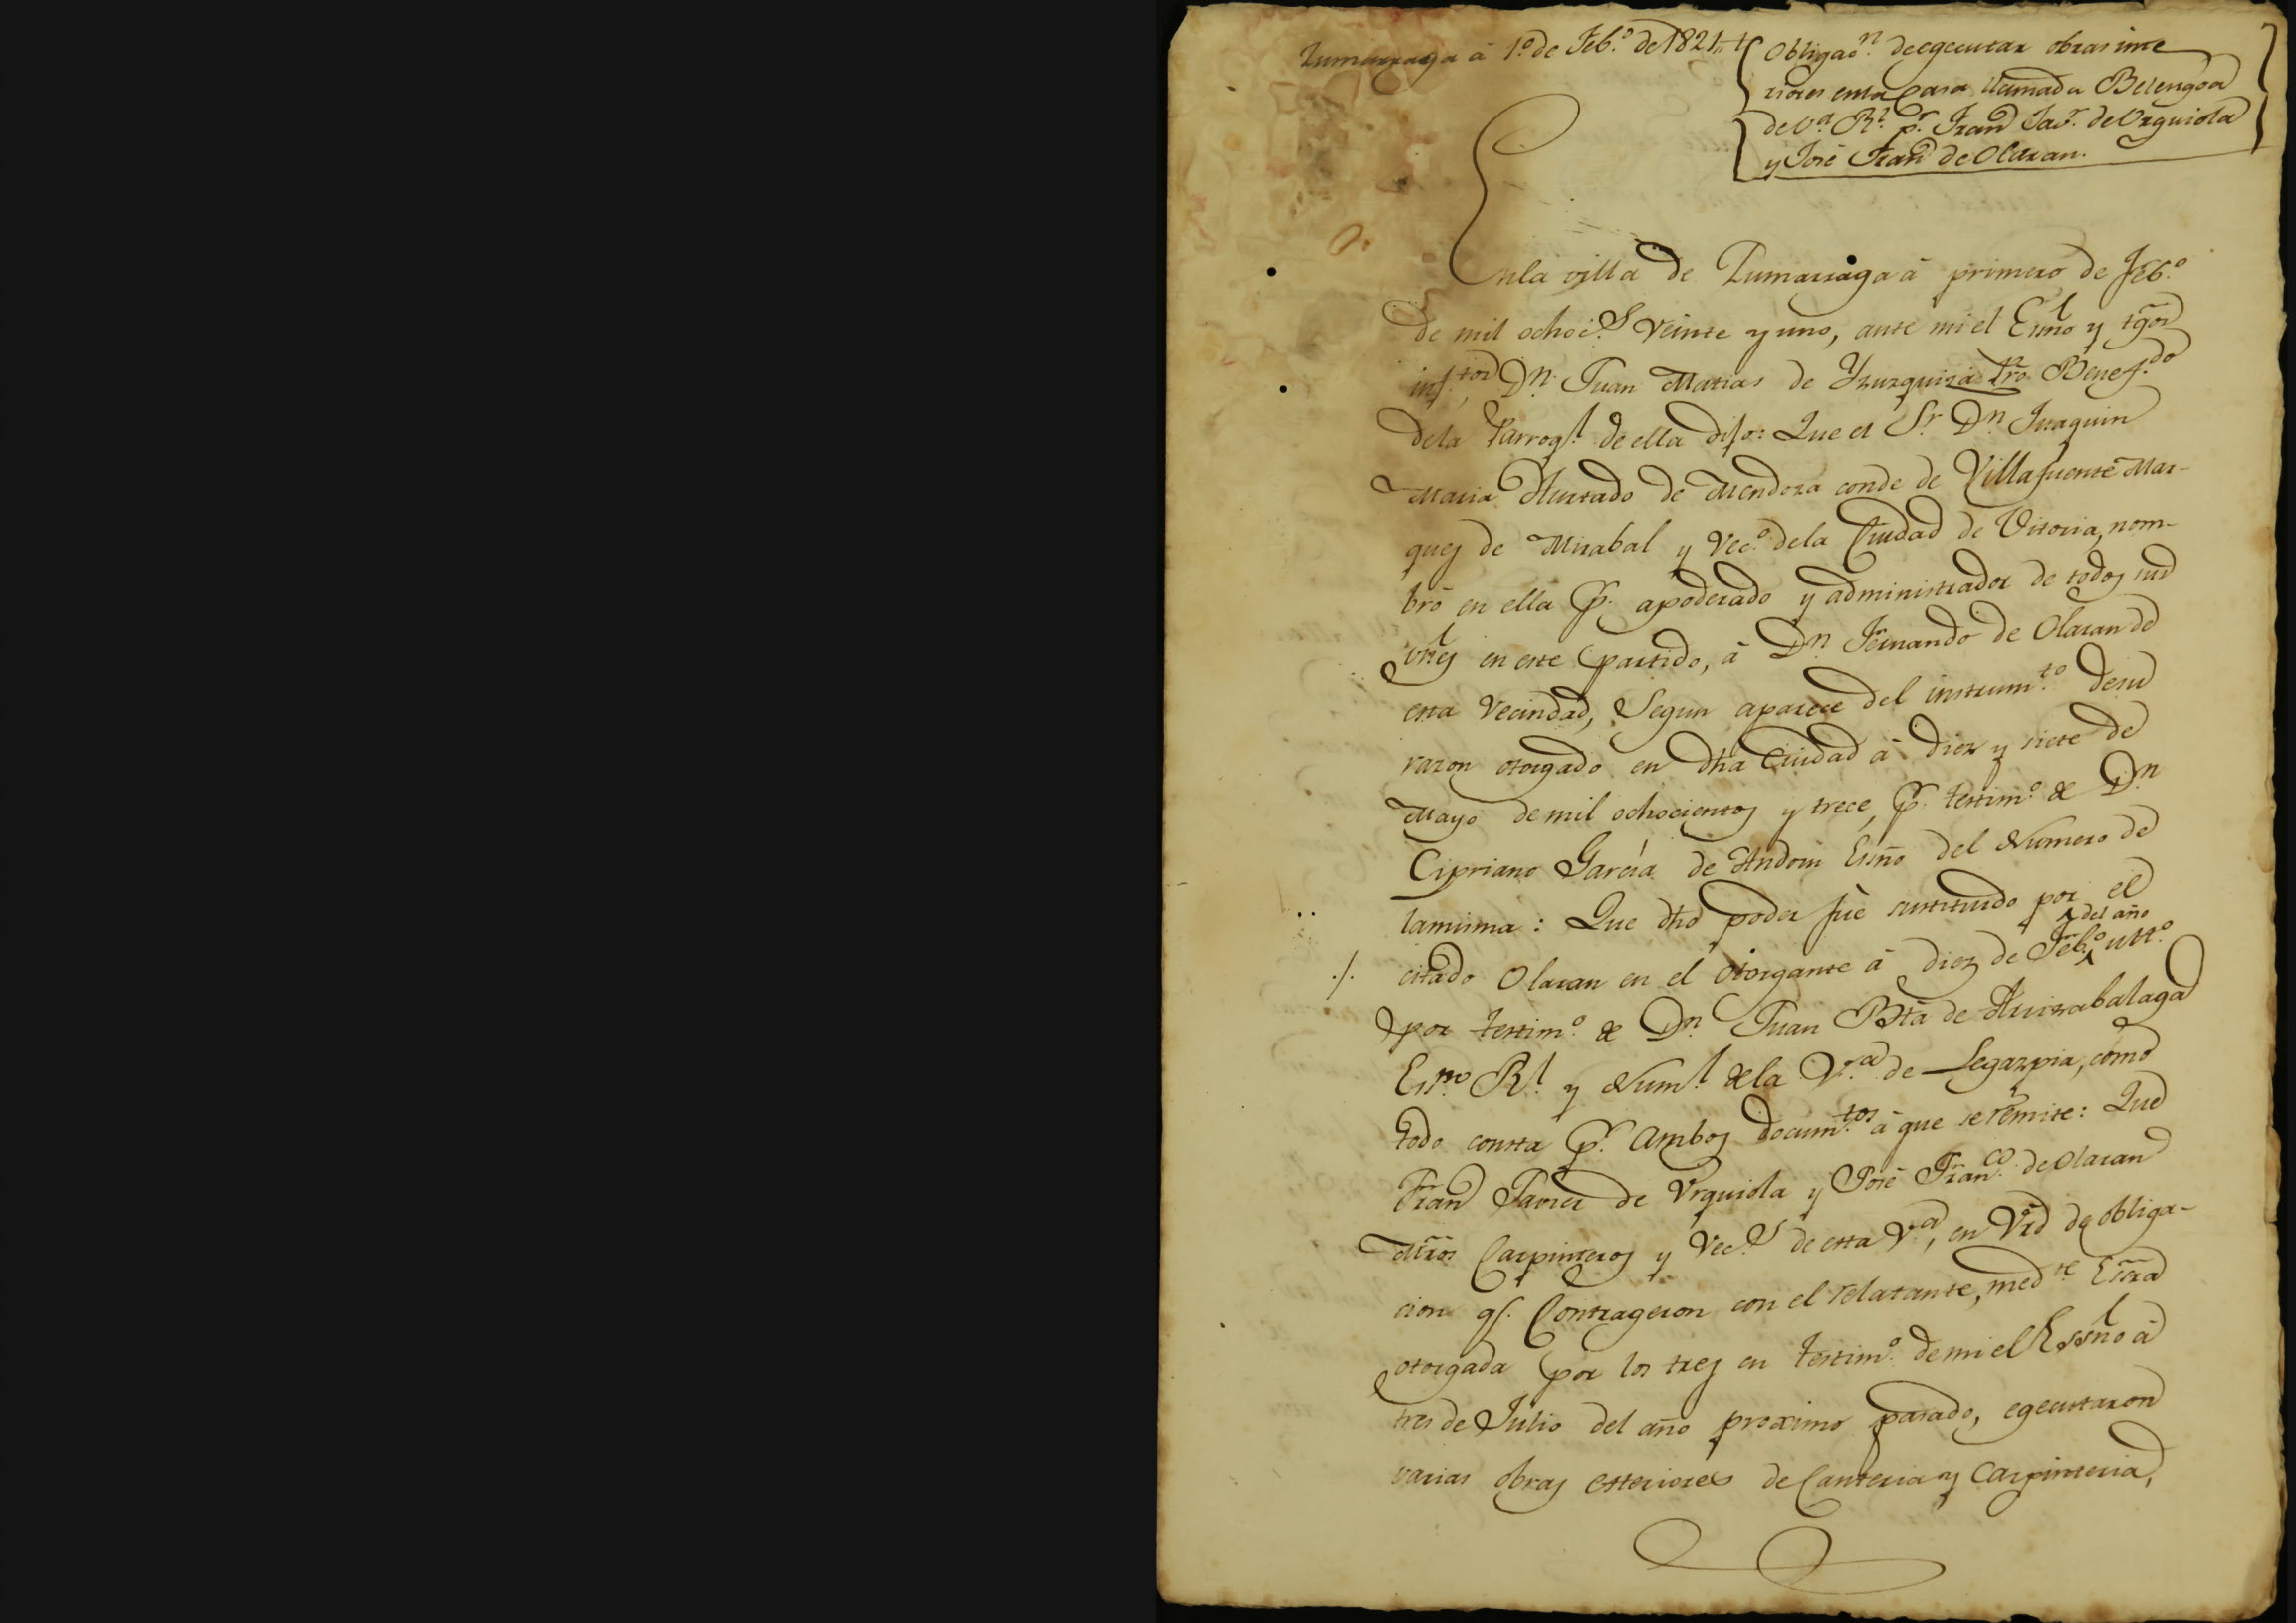 Zumarraga à 1.º de Feb.º de 1821.
Obligac.n de egecutar obras inte
riores en la Casa llamada Belengoa
de V.a R.l p.r Fran.co Jav.r de Urquiola
y José Fran.co de Olaran.
En la villa de Zumarraga à primero de Feb.º
de mil ochoc.s veinte y uno, ante mi el Essno y tgos
inf.tos D.n Juan Matias de Yzuzquiza Pro Benef.do
dela Parroq.l de ella dijo: Que el S.r D.n Juaquin
Maria Hurtado de Mendoza conde de Villafuente Mar-
ques de Mirabal y Vec.º dela Ciudad de Vitoria, nom-
brò en ella p.r apoderado y administrador de todos sus
vnes en este partido, à D.n Fernando de Olaran de
esta Vecindad, Segun aparece del instrum.to de su
razon otorgado en dha Ciudad à diez y siete de
Mayo de mil ochocientos y trece, p.r testim.º de D.n
Cipriano Garcia de Andoin Essno del Numero de
la misma: Que dho poder fuè sustituido por el
del año
./. citado Olaran en el otorgante à diez de Feb.º ult.º
por testim.º de D.n Juan Bta de Aruizabalaga
Ess.no R.l y Num.l dela V.a de Legazpia, como
todo consta p.r Ambos docum.tos à que se remite: Que
Fran.co Javier de Urquiola y José Fran.co de Olaran
Mros Carpinteros y Vec.s de esta V.a, en Vrd de obliga-
cion q.e Contrageron con el relatante, med.te Essra
otorgada por los tres en testim.º de mi el Essno à
tres de Julio del año proximo pasado, egecutaron
varias obras esteriores de Canteria y Carpinteria,